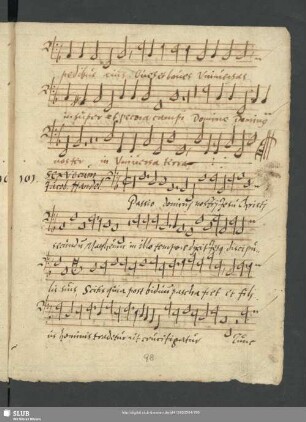 pedibus eius Oves et boves Universas
insuper et pecora campi Domine Dominus
noster in Universa terra
101. Sex vocum
Jacob Handel
Passio Domini nostri Jesu Christi
secundum Mattheum in illo tempore dixit Jesus discipu
lis suis Scitis quia post biduum pascha fiet et fili
us hominis tradetur ut crucifigatur Tunc
98
SLUB